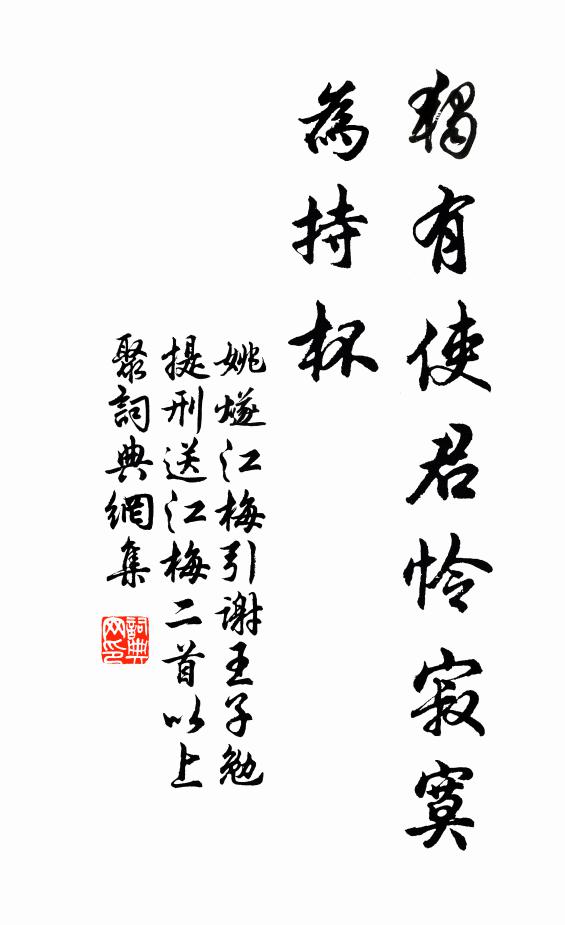 獨有使君怜寂寞
為持杯
姚燧江梅引謝王子勉
提刑送江梅二首以上
聚詞典網集
詞典
网印